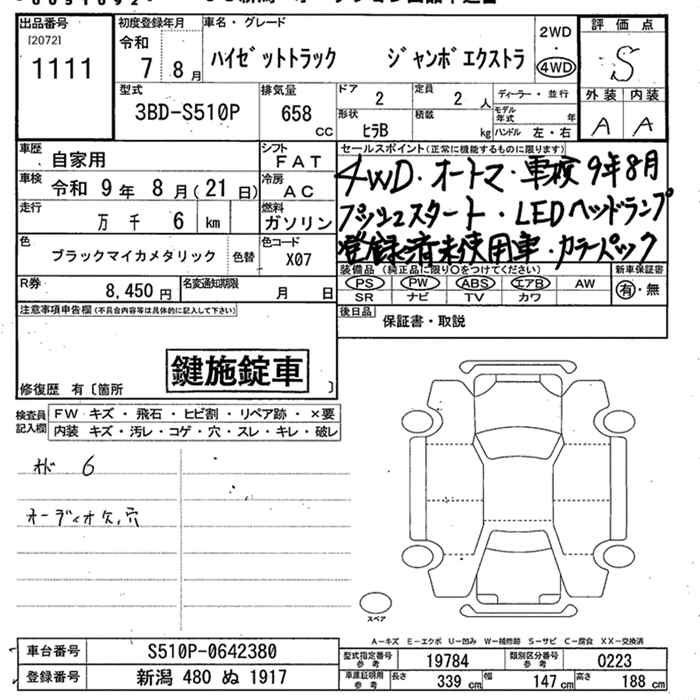 出品番号
[2072]
1111
初度登録年月
令和
7 8月
車名・グレード
ハイゼットトラック ジャンボエクストラ
2WD
4WD
評価点
S
外装 内装
A A
型式
3BD-S510P
排気量
658
cc
ドア
2
定員
2 人
形状
ヒラB
積載
kg
ディーラー・並行
モデル年式 年
ハンドル 左・右
車歴 自家用
シフト FAT
車検 令和 9年 8月(21日)
冷房 AC
走行 万 千 6 km
燃料 ガソリン
色 ブラックマイカメタリック 色替
色コード X07
R券 8,450円
名変通知期限 月 日
セールスポイント(正常に機能するものに限ります)
4WD・オートマ・車検9年8月
プッシュスタート・LEDヘッドランプ
登録済未使用車・カラーパック
装備品(純正品に限り○をつけてください)
PS PW ABS エアB AW
SR ナビ TV カワ
新車保証書
有・無
後日品 保証書・取説
注意事項申告欄(不具合内容等は具体的に記入して下さい)
鍵施錠車
修復歴 有〔箇所 〕
検査員記入欄
FW キズ・飛石・ヒビ割・リペア跡・×要
内装 キズ・汚レ・コゲ・穴・スレ・キレ・破レ
オド 6
オーディオ欠,穴
スペア
A-キズ E-エクボ U-凹み W-補修跡 S-サビ C-腐食 XX-交換済
車台番号 S510P-0642380
登録番号 新潟 480 ぬ 1917
型式指定番号参考 19784
類別区分番号参考 0223
車庫証明用参考 長さ 339cm 幅 147cm 高さ 188cm